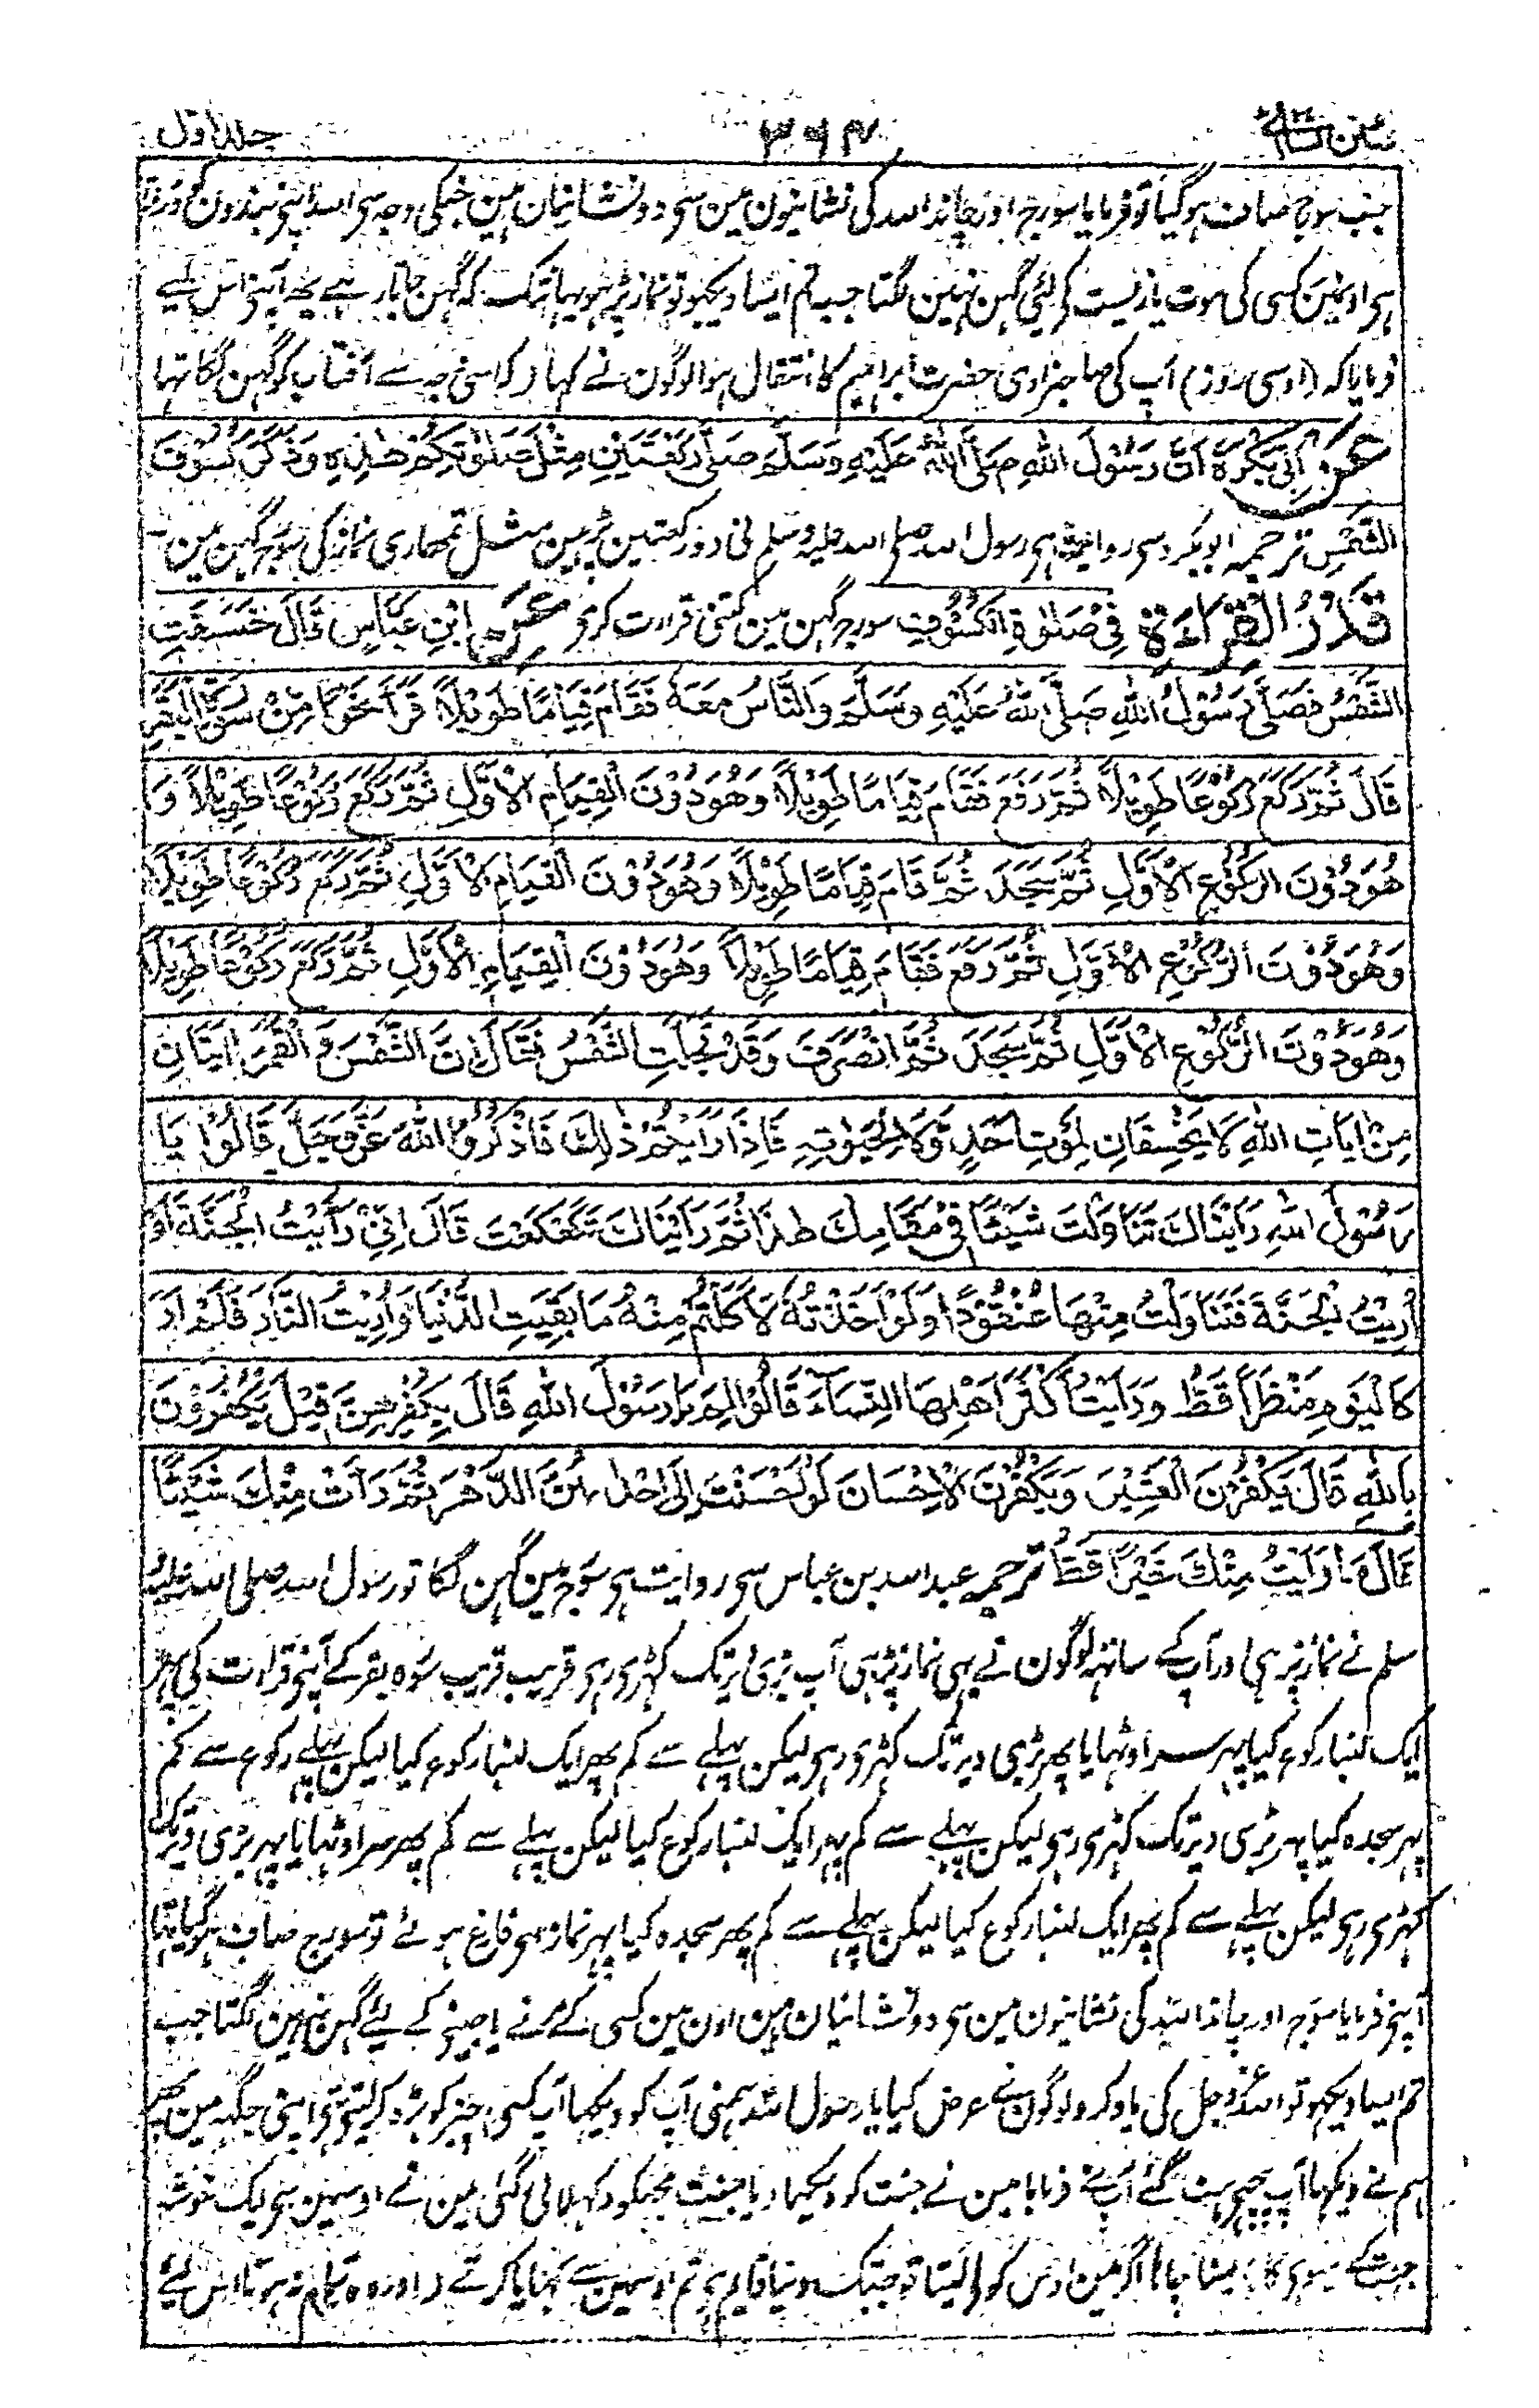 سنن نسائی ۳۶۴ جلد اول
جب سورج صاف ہوگیا تو فرمایا سورج اور چاند اللہ کی نشانیون مین سی دو نشانیان ہین جنکی وجہ سی اللہ اپنی بندون کو ڈراتا
ہی اونمین کسی کی موت یا زیست کی لئی گہن نہین لگتا جب تم ایسا دیکہو تو نماز پڑہو یہانتک کہ گہن جاتا رہے یہ آپنی اس لیے
فرمایا کہ (اوسی روز) آپ کی صاحبزادی حضرت ابراہیم کا انتقال ہوا لوگون نے کہا کہ اسی وجہ سے آفتاب کو گہن لگا تہا
عَنْ اَبِیْ بَکْرَۃَ اَنَّ رَسُوْلَ اللّٰہِ صَلَّی اللّٰہُ عَلَیْہِ وَسَلَّمَ صَلّٰی رَکْعَتَیْنِ مِثْلَ صَلٰوتِکُمْ ھٰذِہٖ وَذَکَرَ کُسُوْفَ
الشَّمْسِ ترجمہ ابوبکرہ سی روایت ہی رسول اللہ صلی اللہ علیہ وسلم نی دو رکعتین پڑہین مثل تمھاری نماز کی سورج گہن مین
قَدْرُ الْقِرَاءَۃِ فِیْ صَلٰوۃِ الْکُسُوْفِ سورج گہن مین کتنی قرارت کری عَنِ ابْنِ عَبَّاسٍ قَالَ خَسَفَتِ
الشَّمْسُ فَصَلّٰی رَسُوْلُ اللّٰہِ صَلَّی اللّٰہُ عَلَیْہِ وَسَلَّمَ وَالنَّاسُ مَعَہٗ فَقَامَ قِیَامًا طَوِیْلًا قَرَأَ نَحْوًا مِّنْ سُوْرَۃِ الْبَقَرَۃِ
قَالَ ثُمَّ رَکَعَ رُکُوْعًا طَوِیْلًا ثُمَّ رَفَعَ فَقَامَ قِیَامًا طَوِیْلًا وَھُوَ دُوْنَ الْقِیَامِ الْاَوَّلِ ثُمَّ رَکَعَ رُکُوْعًا طَوِیْلًا وَ
ھُوَ دُوْنَ الرُّکُوْعِ الْاَوَّلِ ثُمَّ سَجَدَ ثُمَّ قَامَ قِیَامًا طَوِیْلًا وَھُوَ دُوْنَ الْقِیَامِ الْاَوَّلِ ثُمَّ رَکَعَ رُکُوْعًا طَوِیْلًا
وَھُوَ دُوْنَ الرُّکُوْعِ الْاَوَّلِ ثُمَّ رَفَعَ فَقَامَ قِیَامًا طَوِیْلًا وَھُوَ دُوْنَ الْقِیَامِ الْاَوَّلِ ثُمَّ رَکَعَ رُکُوْعًا طَوِیْلًا
وَھُوَ دُوْنَ الرُّکُوْعِ الْاَوَّلِ ثُمَّ سَجَدَ ثُمَّ انْصَرَفَ وَقَدْ تَجَلَّتِ الشَّمْسُ فَقَالَ اِنَّ الشَّمْسَ وَالْقَمَرَ اٰیَتَانِ
مِنْ اٰیَاتِ اللّٰہِ لَا یَخْسِفَانِ لِمَوْتِ اَحَدٍ وَّلَا لِحَیٰوتِہٖ فَاِذَا رَاَیْتُمْ ذٰلِکَ فَاذْکُرُوا اللّٰہَ عَزَّ وَجَلَّ قَالُوْا یَا
رَسُوْلَ اللّٰہِ رَاَیْنَاکَ تَنَاوَلْتَ شَیْئًا فِیْ مَقَامِکَ ھٰذَا ثُمَّ رَاَیْنَاکَ تَکَعْکَعْتَ قَالَ اِنِّیْ رَاَیْتُ الْجَنَّۃَ اَوْ
اُرِیْتُ الْجَنَّۃَ فَتَنَاوَلْتُ مِنْھَا عُنْقُوْدًا وَلَوْ اَخَذْتُہٗ لَاَکَلْتُمْ مِنْہُ مَا بَقِیَتِ الدُّنْیَا وَاُرِیْتُ النَّارَ فَلَمْ اَرَ
کَالْیَوْمِ مَنْظَرًا قَطُّ وَرَاَیْتُ اَکْثَرَ اَھْلِھَا النِّسَاءَ قَالُوْا لِمَ یَا رَسُوْلَ اللّٰہِ قَالَ بِکُفْرِھِنَّ قِیْلَ یَکْفُرْنَ
بِاللّٰہِ قَالَ یَکْفُرْنَ الْعَشِیْرَ وَیَکْفُرْنَ الْاِحْسَانَ لَوْ اَحْسَنْتَ اِلٰی اِحْدٰىھُنَّ الدَّھْرَ ثُمَّ رَاَتْ مِنْکَ شَیْئًا
قَالَتْ مَا رَاَیْتُ مِنْکَ خَیْرًا قَطُّ ترجمہ عبداللہ بن عباس سی روایت ہی سورج مین گہن لگا تو رسول اللہ صلی اللہ علیہ و
سلم نے نماز پڑہی اور آپ کے ساتہہ لوگون نے بہی نماز پڑہی آپ بڑی دیر تک کہڑی رہی قریب قریب سورہ بقر کے آپنی قرارت کی پہر
ایک لنبا رکوع کیا پہر سر اوٹہایا پھر بڑی دیر تک کہڑی رہی لیکن پہلے سے کم پھر ایک لنبا رکوع کیا لیکن پہلے رکوع سے کم
پہر سجدہ کیا پہر بڑی دیر تک کہڑی رہی لیکن پہلے سے کم پہر ایک لنبا رکوع کیا لیکن پہلے سے کم پھر سر اوٹہایا پہر بڑی دیر تک
کہڑی رہی لیکن پہلے سے کم پھر ایک لنبا رکوع کیا لیکن پہلے سے کم پھر سجدہ کیا پہر نماز سی فارغ ہوئے تو سورج صاف ہوگیا تہا
آپنی فرمایا سورج اور چاند اللہ کی نشانیون مین سی دو نشانیان ہین اون مین کسی کے مرنے یا جینے کے لئے گہن نہین لگتا جب
تم ایسا دیکہو تو اللہ عز وجل کی یاد کرو لوگون نے عرض کیا یا رسول اللہ ہمنی آپ کو دیکہا آپ کسی چیز کو بڑہ کر لیتی تہی اپنی جگہہ مین پہر
ہم نے دیکہا آپ پیچہی ہٹ گئے آپنے فرمایا مین نے جنت کو دیکہا یا جنت مجہکو دکہلائی گئی مین نے اوسمین سی ایک خوشہ
جنت کے میوی کا لینا چاہا اگر مین اوس کو لی لیتا تو جبتک دنیا قایم ہی تم اوسمین سے کہایا کرتے (اور وہ تمام نہ ہوتا اس لئے